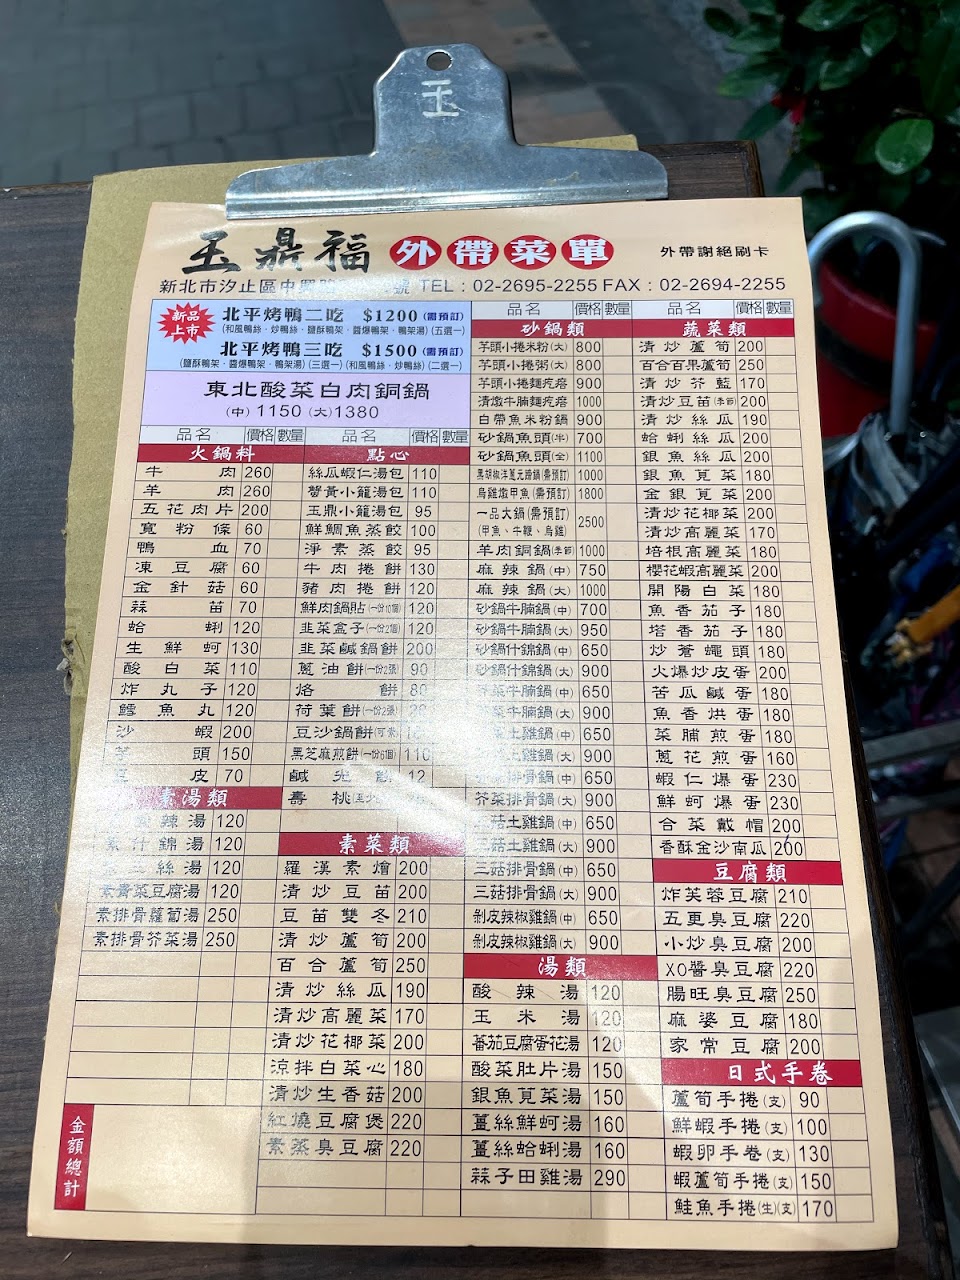 玉
玉鼎福 外帶菜單 外帶謝絕刷卡
新北市汐止區中興路 號 TEL：02-2695-2255 FAX：02-2694-2255
新品上市
北平烤鴨二吃 $1200(需預訂)
(和風鴨絲、炒鴨絲、鹽酥鴨架、醬爆鴨架、鴨架湯)(五選一)
北平烤鴨三吃 $1500(需預訂)
(鹽酥鴨架、醬爆鴨架、鴨架湯)(三選一)(和風鴨絲、炒鴨絲)(二選一)
東北酸菜白肉銅鍋
(中)1150 (大)1380
品名 價格 數量
火鍋料
牛肉 260
羊肉 260
五花肉片 200
寬粉條 60
鴨血 70
凍豆腐 60
金針菇 60
蒜苗 70
蛤蜊 120
生鮮蚵 130
酸白菜 110
炸丸子 120
鱈魚丸 120
沙蝦 200
芋頭 150
皮 70
素湯類
辣湯 120
素什錦湯 120
三絲湯 120
素薺菜豆腐湯 120
素排骨蘿蔔湯 250
素排骨芥菜湯 250
金額總計
品名 價格 數量
點心
絲瓜蝦仁湯包 110
蟹黃小籠湯包 110
玉鼎小籠湯包 95
鮮鯛魚蒸餃 100
淨素蒸餃 95
牛肉捲餅 130
豬肉捲餅 120
鮮肉鍋貼(一份10個) 120
韭菜盒子(一份2個) 120
韭菜鹹鍋餅 200
蔥油餅(一份2張) 90
烙餅 80
荷葉餅(一份2張)
豆沙鍋餅(可素)
黑芝麻煎餅(一份6個) 110
鹹光餅 12
壽桃
素菜類
羅漢素燴 200
清炒豆苗 200
豆苗雙冬 210
清炒蘆筍 200
百合蘆筍 250
清炒絲瓜 190
清炒高麗菜 170
清炒花椰菜 200
涼拌白菜心 180
清炒生香菇 200
紅燒豆腐煲 220
素蒸臭豆腐 220
品名 價格 數量
砂鍋類
芋頭小捲米粉(大) 800
芋頭小捲粥(大) 800
芋頭小捲麵疙瘩 900
清燉牛腩麵疙瘩 1000
白帶魚米粉鍋 900
砂鍋魚頭(半) 700
砂鍋魚頭(全) 1100
黑胡椒洋蔥元蹄鍋(需預訂) 1000
烏雞燉甲魚(需預訂) 1800
一品大鍋(需預訂)
(甲魚、牛鞭、烏雞) 2500
羊肉銅鍋(季節) 1000
麻辣鍋(中) 750
麻辣鍋(大) 1000
砂鍋牛腩鍋(中) 700
砂鍋牛腩鍋(大) 950
砂鍋什錦鍋(中) 650
砂鍋什錦鍋(大) 900
芥菜牛腩鍋(中) 650
芥菜牛腩鍋(大) 900
土雞鍋(中) 650
土雞鍋(大) 900
芥菜排骨鍋(中) 650
芥菜排骨鍋(大) 900
三菇土雞鍋(中) 650
三菇土雞鍋(大) 900
三菇排骨鍋(中) 650
三菇排骨鍋(大) 900
剝皮辣椒雞鍋(中) 650
剝皮辣椒雞鍋(大) 900
湯類
酸辣湯 120
玉米湯 120
蕃茄豆腐蛋花湯 120
酸菜肚片湯 150
銀魚莧菜湯 150
薑絲鮮蚵湯 160
薑絲蛤蜊湯 160
蒜子田雞湯 290
品名 價格 數量
蔬菜類
清炒蘆筍 200
百合百果蘆筍 250
清炒芥藍 170
清炒豆苗(季節) 200
清炒絲瓜 190
蛤蜊絲瓜 200
銀魚絲瓜 200
銀魚莧菜 180
金銀莧菜 200
清炒花椰菜 200
清炒高麗菜 170
培根高麗菜 180
櫻花蝦高麗菜 200
開陽白菜 180
魚香茄子 180
塔香茄子 180
炒蒼蠅頭 180
火爆炒皮蛋 200
苦瓜鹹蛋 180
魚香烘蛋 180
菜脯煎蛋 180
蔥花煎蛋 160
蝦仁爆蛋 230
鮮蚵爆蛋 230
合菜戴帽 200
香酥金沙南瓜 200
豆腐類
炸芙蓉豆腐 210
五更臭豆腐 220
小炒臭豆腐 200
XO醬臭豆腐 220
腸旺臭豆腐 250
麻婆豆腐 180
家常豆腐 200
日式手卷
蘆筍手捲(支) 90
鮮蝦手捲(支) 100
蝦卵手卷(支) 130
蝦蘆筍手捲(支) 150
鮭魚手捲(生)(支) 170